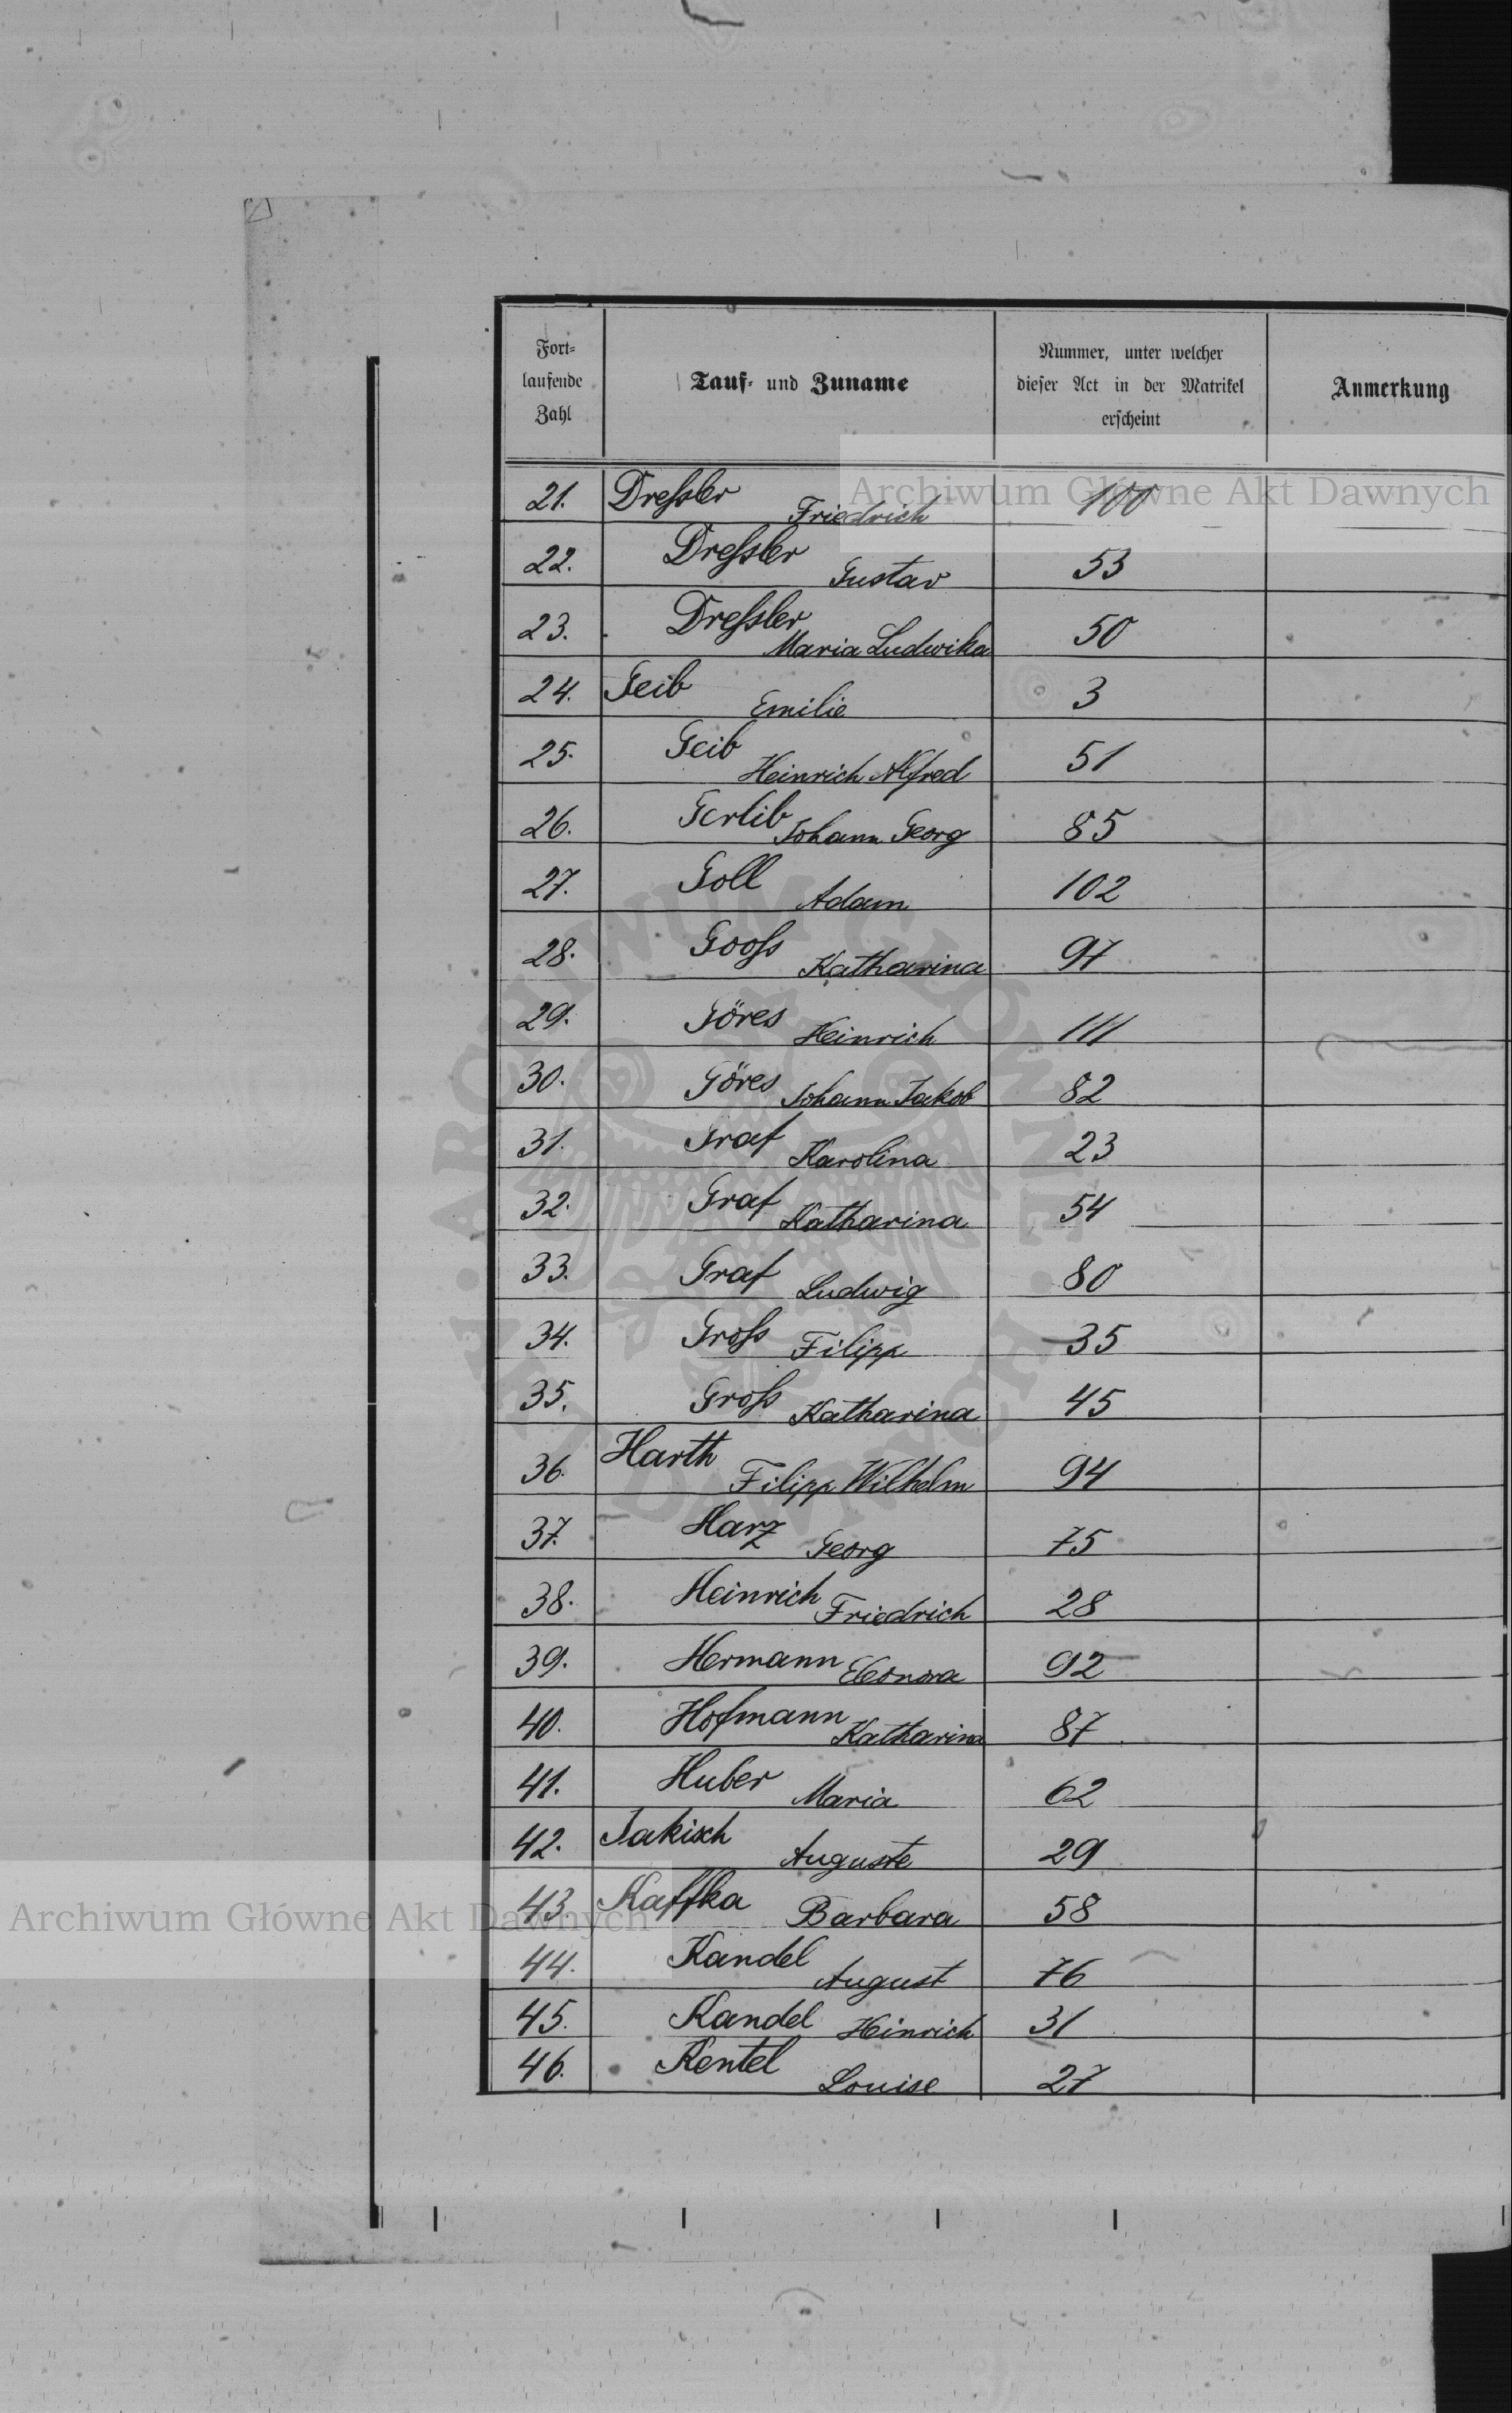 Fort-
laufende
Zahl
Tauf- und Zuname
Nummer, unter welcher
dieser Act in der Matrikel
erscheint
Anmerkung
21. Dreſsler Friedrich 100
22. Dreſsler Gustav 53
23. Dreſsler Maria Ludwika 50
24. Geib Emilie 3
25. Geib Heinrich Alfred 51
26. Gerlib Johann Georg 85
27. Goll Adam 102
28. Gooſs Katharina 97
29. Göres Heinrich 111
30. Göres Johann Jakob 82
31. Graf Karolina 23
32. Graf Katharina 54
33. Graf Ludwig 80
34. Groſs Filipp 35
35. Groſs Katharina 45
36. Harth Filipp Wilhelm 94
37. Harz Georg 75
38. Heinrich Friedrich 28
39. Hermann Eleonora 92
40. Hofmann Katharina 87
41. Huber Maria 62
42. Jakisch Auguste 29
43. Kaffka Barbara 58
44. Kandel August 76
45. Kandel Heinrich 31
46. Kentel Louise 27
Archiwum Główne Akt Dawnych
Archiwum Główne Akt Dawnych
ARCHIWUM GŁÓWNE · AKT DAWNYCH ·